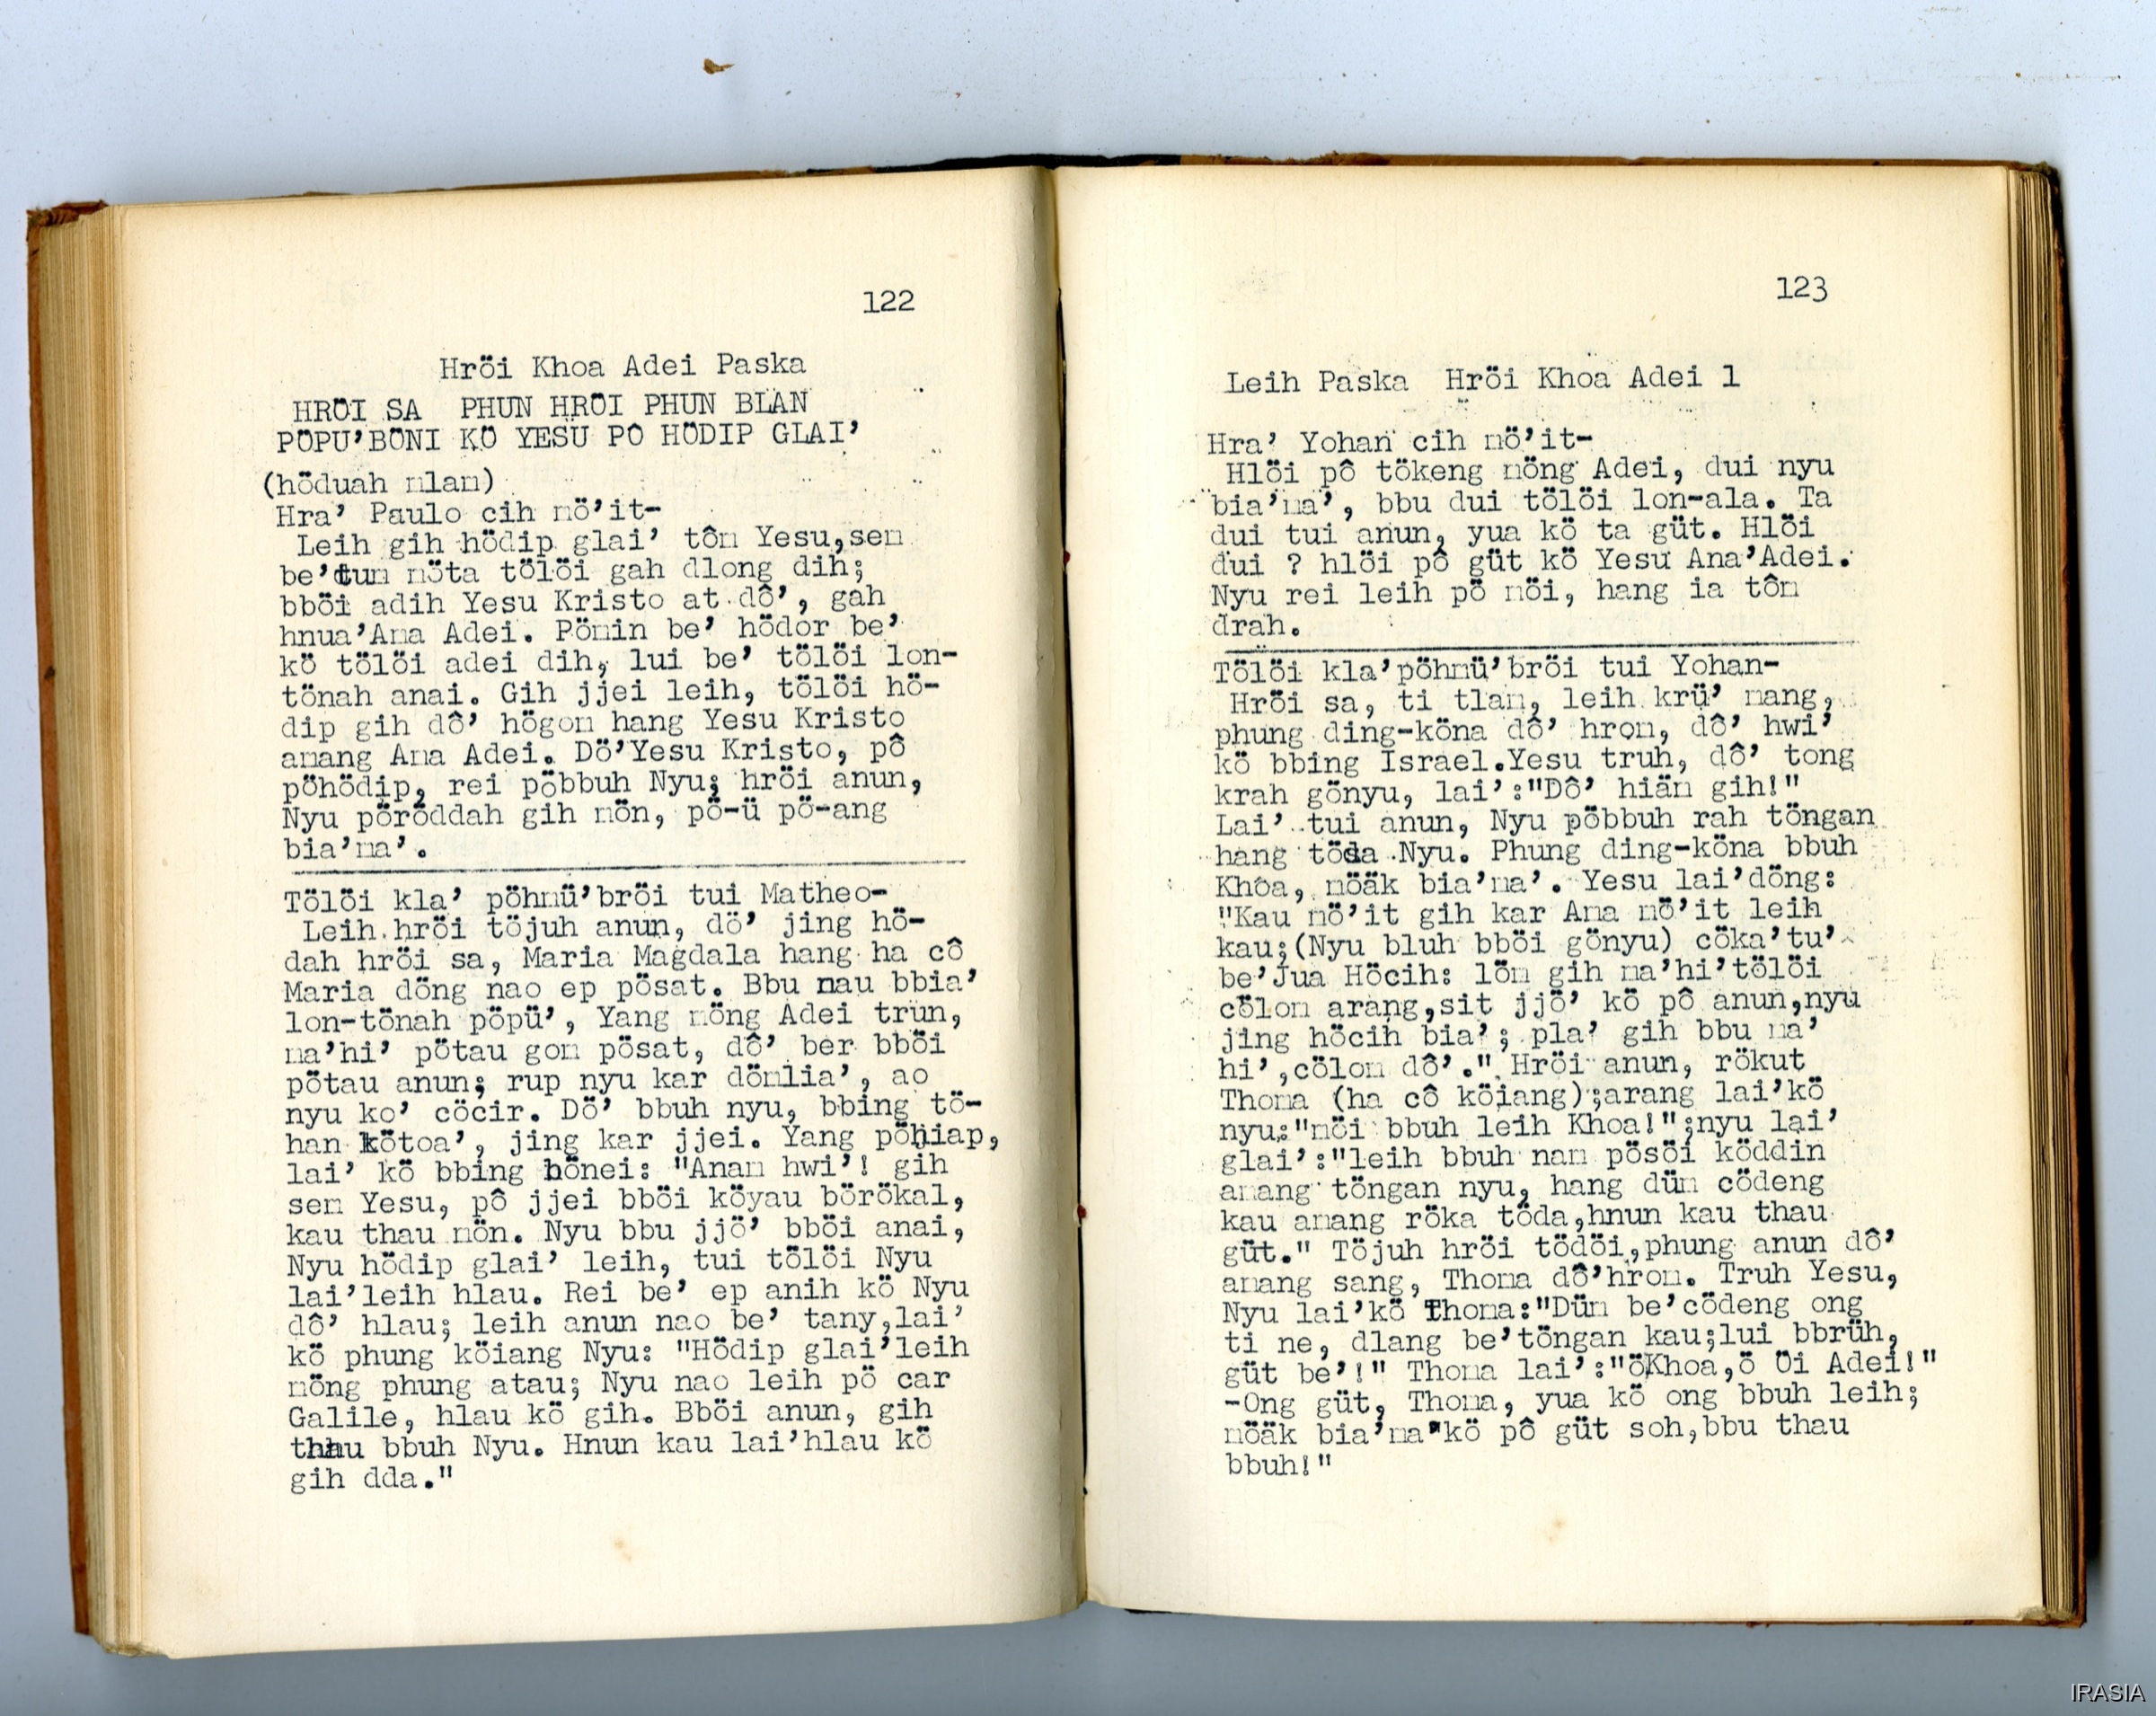 122
Hröi Khoa Adei Paska
HRÖI SA PHUN HRÖI PHUN BLAN
PÖPU’BÖNI KÖ YESU PÔ HÖDIP GLAI’
(höduah mlam)
Hra’ Paulo cih mö’it-
Leih gih hödip glai’ tôm Yesu,sem
be’tum möta tölöi gah dlong dih;
bböi adih Yesu Kristo at dô’, gah
hnua’Ama Adei. Pömin be’ hödor be’
kö tölöi adei dih, lui be’ tölöi lon-
tönah anai. Gih jjei leih, tölöi hö-
dip gih dô’ högom hang Yesu Kristo
amang Ama Adei. Dö’Yesu Kristo, pô
pöhödip, rei pöbbuh Nyu; hröi anun,
Nyu pöröddah gih mön, pö-ü pö-ang
bia’ma’.
Tölöi kla’ pöhmü’bröi tui Matheo-
Leih hröi töjuh anun, dö’ jing hö-
dah hröi sa, Maria Magdala hang ha cô
Maria döng nao ep pösat. Bbu mau bbia’
lon-tönah pöpü’, Yang möng Adei trun,
ma’hi’ pötau gom pösat, dô’ ber bböi
pötau anun; rup nyu kar dömlia’, ao
nyu ko’ cöcir. Dö’ bbuh nyu, bbing tö-
han kötoa’, jing kar jjei. Yang pöhiap,
lai’ kö bbing bönei: "Anam hwi’! gih
sem Yesu, pô jjei bböi köyau börökal,
kau thau mön. Nyu bbu jjö’ bböi anai,
Nyu hödip glai’ leih, tui tölöi Nyu
lai’leih hlau. Rei be’ ep anih kö Nyu
dô’ hlau; leih anun nao be’ tany,lai’
kö phung köiang Nyu: "Hödip glai’leih
möng phung atau; Nyu nao leih pö car
Galile, hlau kö gih. Bböi anun, gih
thau bbuh Nyu. Hnun kau lai’hlau kö
gih dda."
123
Leih Paska Hröi Khoa Adei 1
Hra’ Yohan cih mö’it-
Hlöi pô tökeng möng Adei, dui nyu
bia’ma’, bbu dui tölöi lon-ala. Ta
dui tui anun, yua kö ta güt. Hlöi
dui ? hlöi pô güt kö Yesu Ana’Adei.
Nyu rei leih pö möi, hang ia tôm
drah.
Tölöi kla’pöhmü’bröi tui Yohan-
Hröi sa, ti tlam, leih krü’ mang,
phung ding-köna dô’ hrom, dô’ hwi’
kö bbing Israel.Yesu truh, dô’ tong
krah gönyu, lai’:"Dô’ hiäm gih!"
Lai’ tui anun, Nyu pöbbuh rah töngan
hang töda Nyu. Phung ding-köna bbuh
Khoa, möäk bia’ma’. Yesu lai’döng:
"Kau mö’it gih kar Ama mö’it leih
kau;(Nyu bluh bböi gönyu) cöka’tu’
be’Jua Höcih: löm gih ma’hi’tölöi
cölom arang,sit jjö’ kö pô anun,nyu
jing höcih bia’; pla’ gih bbu ma’
hi’,cölom dô’." Hröi anun, rökut
Thoma (ha cô köiang);arang lai’kö
nyu:"möi bbuh leih Khoa!";nyu lai’
glai’:"leih bbuh nam pösöi köddin
amang töngan nyu, hang düm cödeng
kau amang röka töda,hnun kau thau
güt." Töjuh hröi tödöi,phung anun dô’
amang sang, Thoma dô’hrom. Truh Yesu,
Nyu lai’kö Thoma:"Düm be’cödeng ong
ti ne, dlang be’töngan kau;lui bbrüh,
güt be’!" Thoma lai’:"öKhoa,ö Öi Adei!"
-Ong güt, Thoma, yua kö ong bbuh leih;
möäk bia’ma’kö pô güt soh,bbu thau
bbuh!"
IRASIA